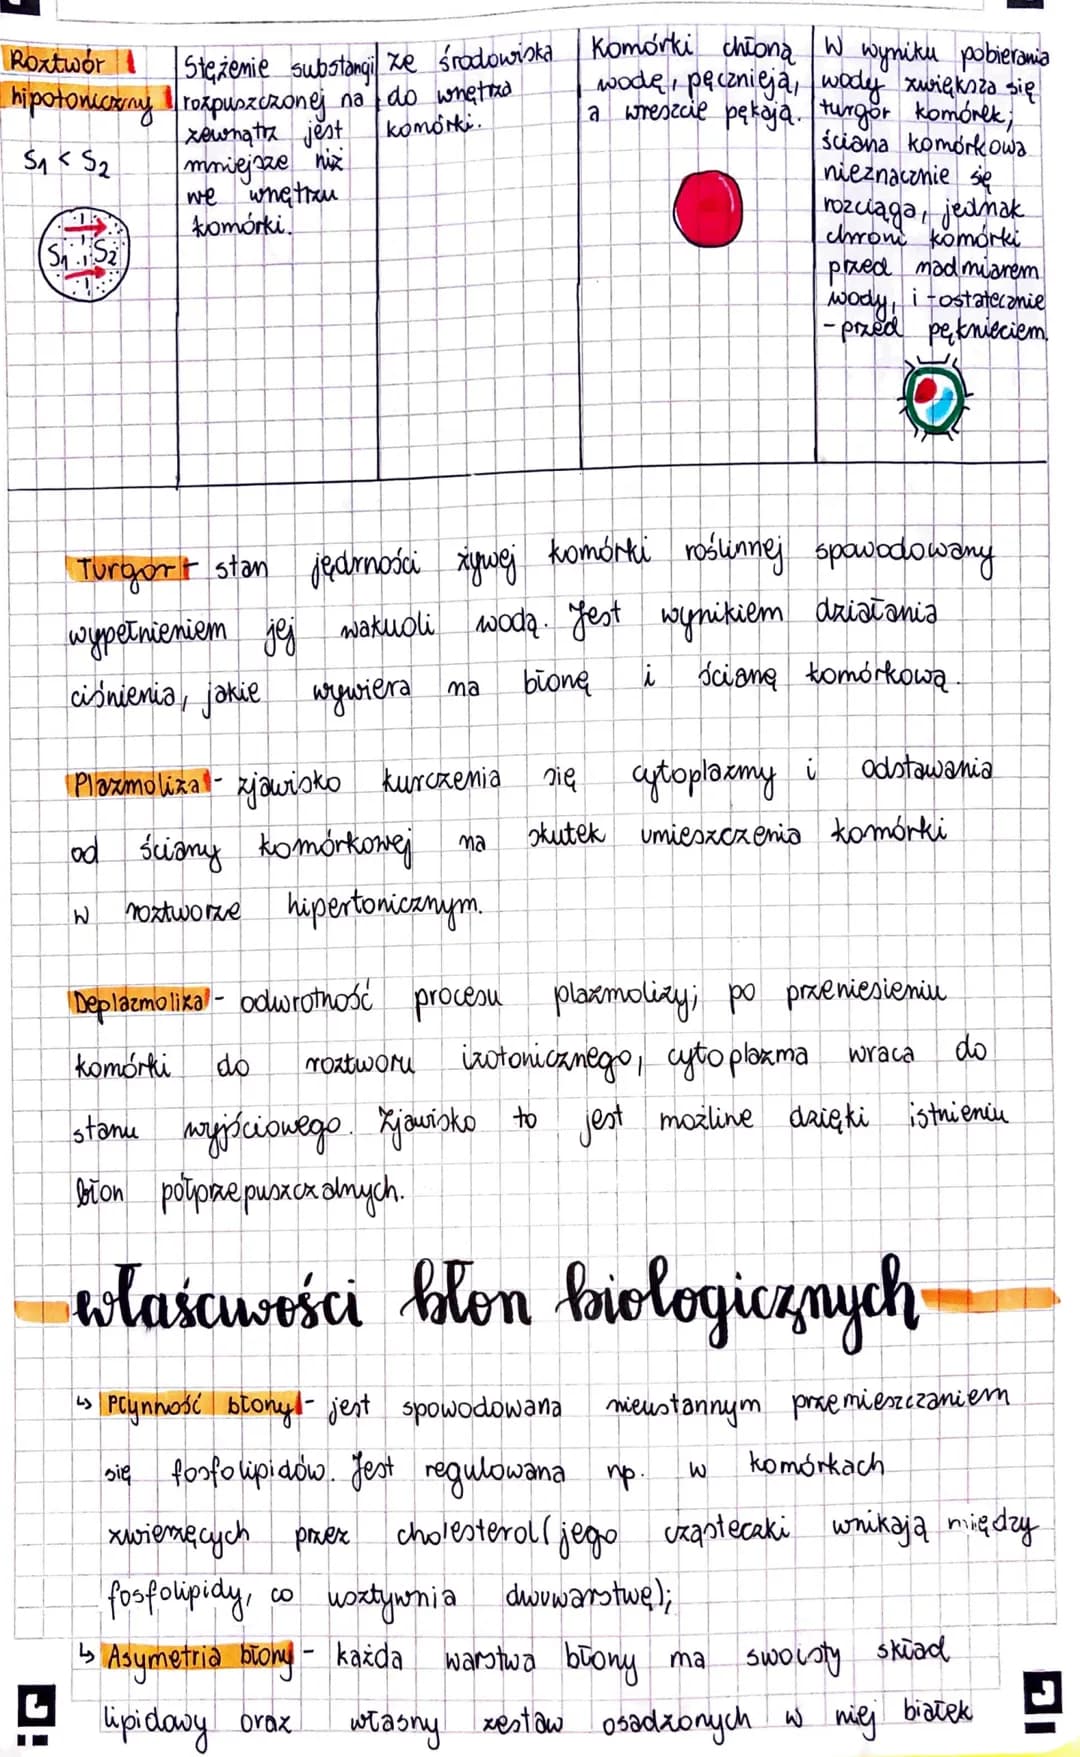 Roztwór
hipotoniczny
S1 < S2
S1 S2
Stężenie substancji
rozpuszczonej na
zewnątrz jest
mniejsze niż
we wnętrzu
komórki.
ze środowiska
do wnętrza
komórki.
Komórki chłoną
wodę, pęcznieją,
a wreszcie pękają.
W wyniku pobierania
wody zwiększa się
turgor komórek;
ściana komórkowa
nieznacznie się
rozciąga, jednak
chroni komórki
przed nadmiarem
wody, i - ostatecznie
- przed pęknięciem.
Turgor - stan jędrności żywej komórki roślinnej spowodowany
wypełnieniem jej wakuoli wodą. Jest wynikiem działania
ciśnienia, jakie wywiera na błonę i ścianę komórkową.
Plazmoliza - zjawisko kurczenia się cytoplazmy i odstawania
od ściany komórkowej na skutek umieszczenia komórki
w roztworze hipertonicznym.
Deplazmoliza - odwrotność procesu plazmolizy; po przeniesieniu
komórki do roztworu izotonicznego, cytoplazma wraca do
stanu wyjściowego. Zjawisko to jest możliwe dzięki istnieniu
błon półprzepuszczalnych.
właściwości błon biologicznych
↳ Płynność błony - jest spowodowana nieustannym przemieszczaniem
się fosfolipidów. Jest regulowana np. w komórkach
zwierzęcych przez cholesterol (jego cząsteczki wnikają między
fosfolipidy, co usztywnia dwuwarstwę);
↳ Asymetria błony - każda warstwa błony ma swoisty skład
lipidowy oraz własny zestaw osadzonych w niej białek